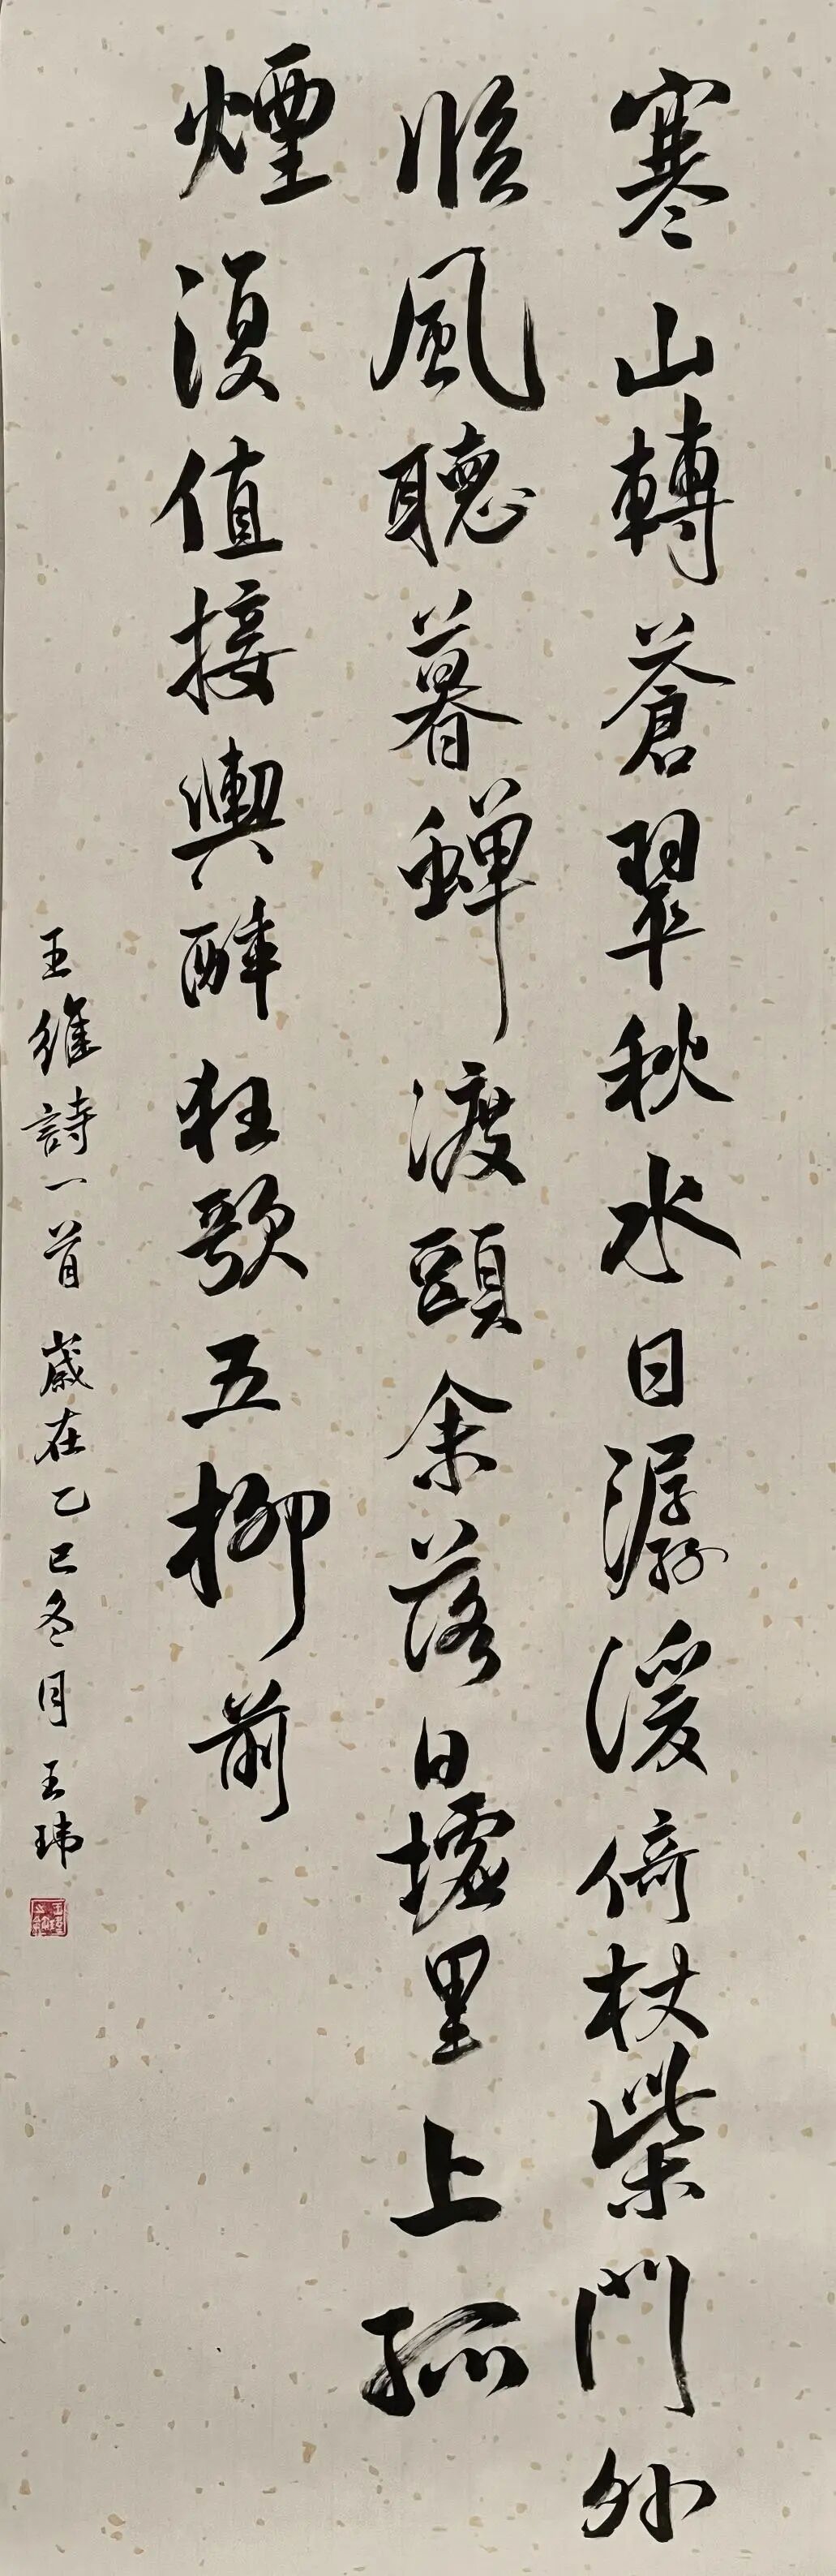 寒山轉蒼翠秋水日潺湲倚杖柴門外
臨風聽暮蟬渡頭余落日墟里上孤
煙復值接輿醉狂歌五柳前
王維詩一首 歲在乙巳冬月 王玮